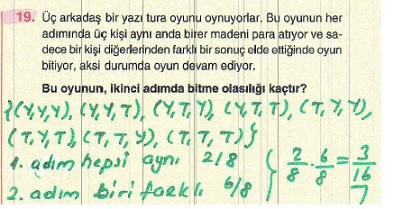 19. Üç arkadaş bir yazı tura oyunu oynuyorlar. Bu oyunun her
adımında üç kişi aynı anda birer madeni para atıyor ve sa-
dece bir kişi diğerlerinden farklı bir sonuç elde ettiğinde oyun
bitiyor, aksi durumda oyun devam ediyor.
Bu oyunun, ikinci adımda bitme olasılığı kaçtır?
{(Y,Y,Y), (Y,Y,T), (Y,T,Y), (Y,T,T), (T,Y,Y),
(T,Y,T), (T,T,Y), (T,T,T)}
1. adım hepsi aynı 2/8
2. adım biri farklı 6/8
2/8 · 6/8 = 3/16